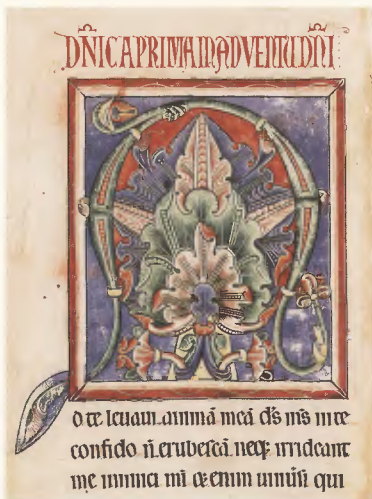 DN̄ICA PRIMA IN ADVENTU DN̄I
A
d te leuaui animā meā ds̄ ms̄ in te
confido n̄ erubescā neq; irrideant
me inimici mi & enim uniūsi qui